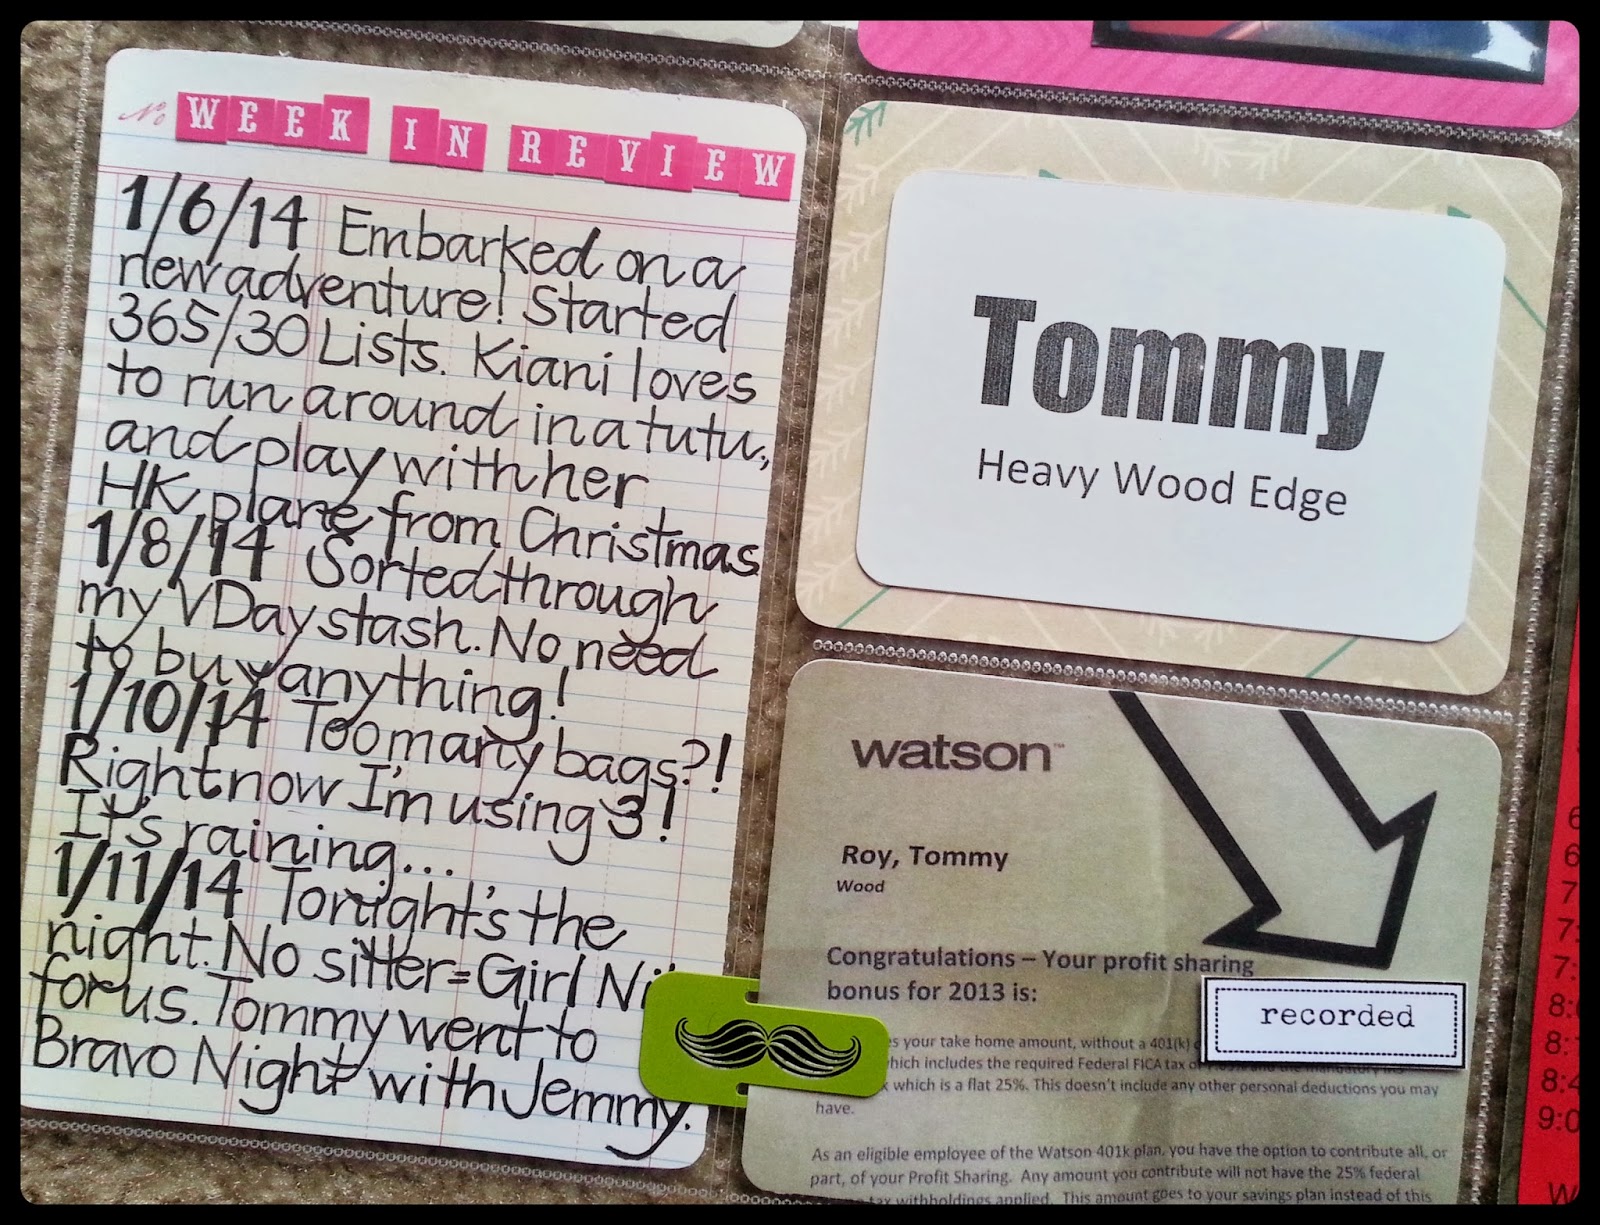 No
WEEK IN REVIEW
1/6/14 Embarked on a
new adventure! Started
365/30 Lists. Kiani loves
to run around in a tutu,
and play with her
HK plane from Christmas
1/8/14 Sorted through
my VDay stash. No need
to buy anything!
1/10/14 Too many bags?!
Right now I'm using 3!
It's raining...
1/11/14 Tonight's the
night. No sitter = Girl
for us. Tommy went to
Bravo Night with Jemmy.
Tommy
Heavy Wood Edge
watson™
Roy, Tommy
Wood
Congratulations – Your profit sharing
bonus for 2013 is:
recorded
your take home amount, without a 401(k)
which includes the required Federal FICA tax of
which is a flat 25%. This doesn't include any other personal deductions you may
have.
As an eligible employee of the Watson 401k plan, you have the option to contribute all, or
part, of your Profit Sharing. Any amount you contribute will not have the 25% federal
tax withholdings applied. This amount goes to your savings plan instead of this